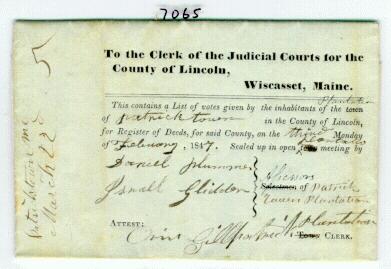 7065
To the Clerk of the Judicial Courts for the
County of Lincoln,
Wiscasset, Maine.
Plantation
This contains a List of votes given by the inhabitants of the town
of Patricktown in the County of Lincoln,
for Register of Deeds, for said County, on the third Monday
of February, 1847. Sealed up in open town meeting by
Plantation
Daniel Plummer
Assessors
Selectmen of Patrick
Israel Glidden
Town Plantation
ATTEST:
Plantation
Town CLERK.
Patricktown Me
March 22d
5